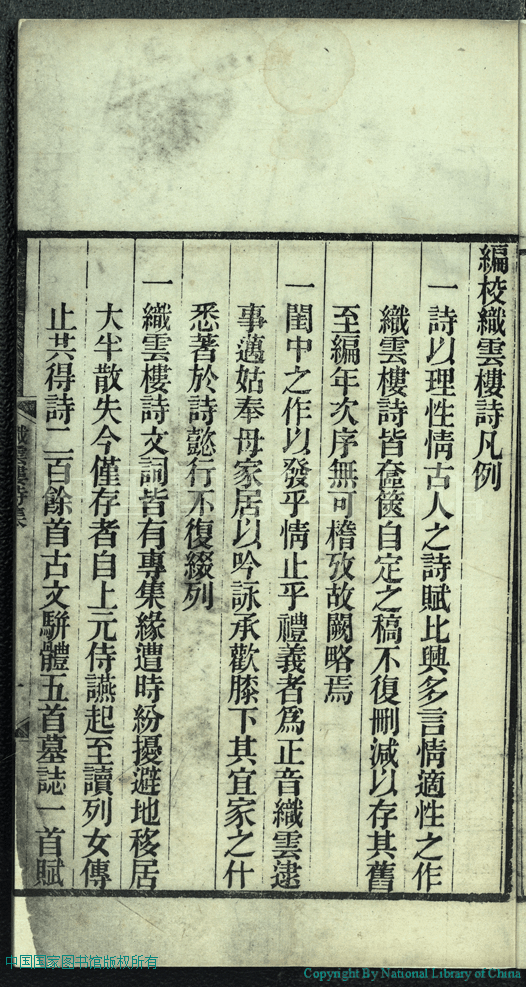 編校織雲樓詩凡例
一詩以理性情古人之詩賦比興多言情適性之作
織雲樓詩皆奩篋自定之稿不復刪減以存其舊
至編年次序無可稽攷故闕略焉
一閨中之作以發乎情止乎禮義者爲正音織雲逮
事邁姑奉母家居以吟詠承歡膝下其宜家之什
悉著於詩懿行不復綴列
一織雲樓詩文詞皆有專集緣遭時紛擾避地移居
大半散失今僅存者自上元侍讌起至讀列女傳
止共得詩二百餘首古文駢體五首墓誌一首賦
中国国家图书馆版权所有
Copyright By National Library of China